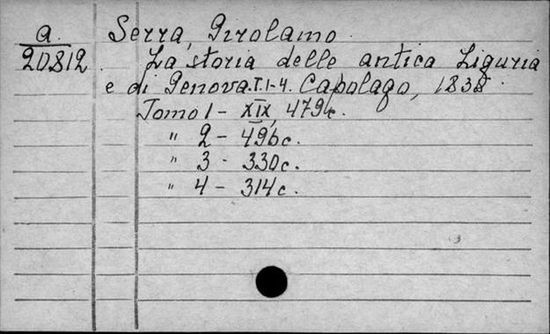 a. Serra, Girolamo.
20812. La storia delle antica Liguria
e di Genova. T. 1-4. Capolago, 1838.
Tomo 1 - XIX, 479c.
" 2 - 496c.
" 3 - 330c.
" 4 - 314c.